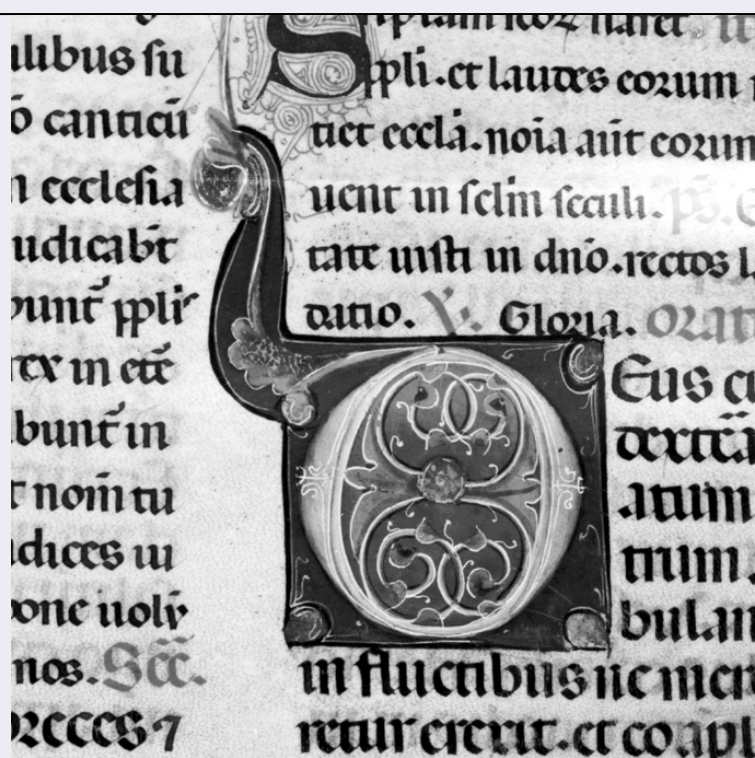 alibus su
o canticū
n ecclesia
udicabt
bunt ppli
rex in etē
bunt in
t nom tu
dices ui
pone uolv
nos. Scē.
orēces ⁊
S iptam
ppli. et laudes eorum
tiet eccla. noia aūt eorum
uent in sclm seculi. ps.
tate iusti in dnō. rectos
datio. ℣. Gloria. orat
DEus q
dextēā
atum
trium.
bulan
in fluctibus ne mer
retur erexit. et coapl